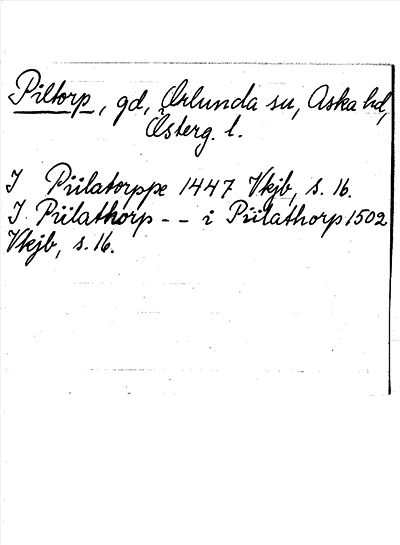 Piltorp, gd, Örlunda sn, Aska hd,
Österg. l.
I Piilatorppe 1447 Vkjb, s. 16.
I Piilathorp - - i Piilathorp 1502
Vkjb, s. 16.